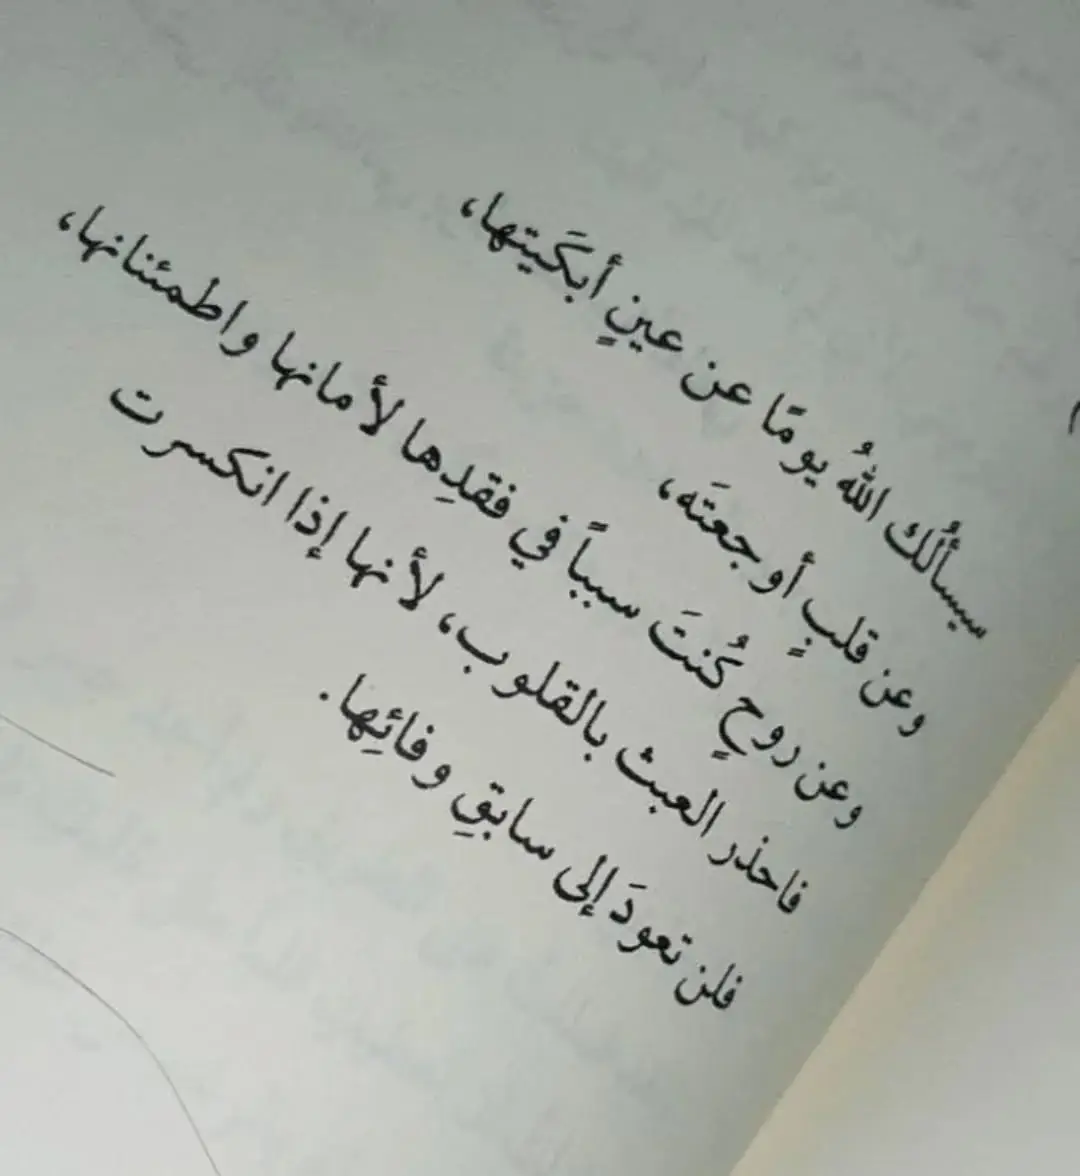 سيسألُك اللهُ يومًا عن عينٍ أبكَيتها،
وعن قلبٍ أوجعتَه،
وعن روحٍ كُنتَ سبباً في فقدِها لأمانها واطمئنانها،
فاحذر العبث بالقلوب، لأنها إذا انكسرت
فلن تعودَ إلى سابقِ وفائِها.